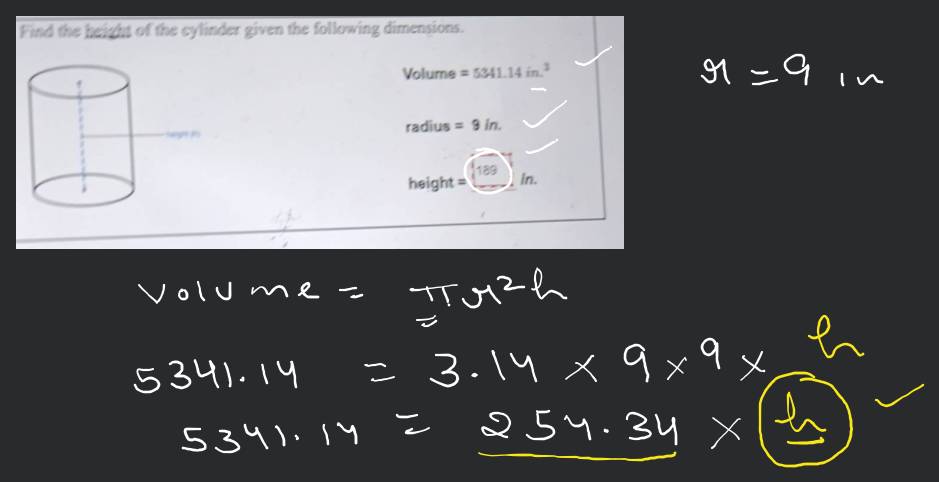 Find the height of the cylinder given the following dimensions.
Volume = 5341.14 in.³
r = 9 in
radius = 9 in.
height = 189 in.
Volume = πr²h
5341.14 = 3.14 × 9 × 9 × h
5341.14 = 254.34 × h